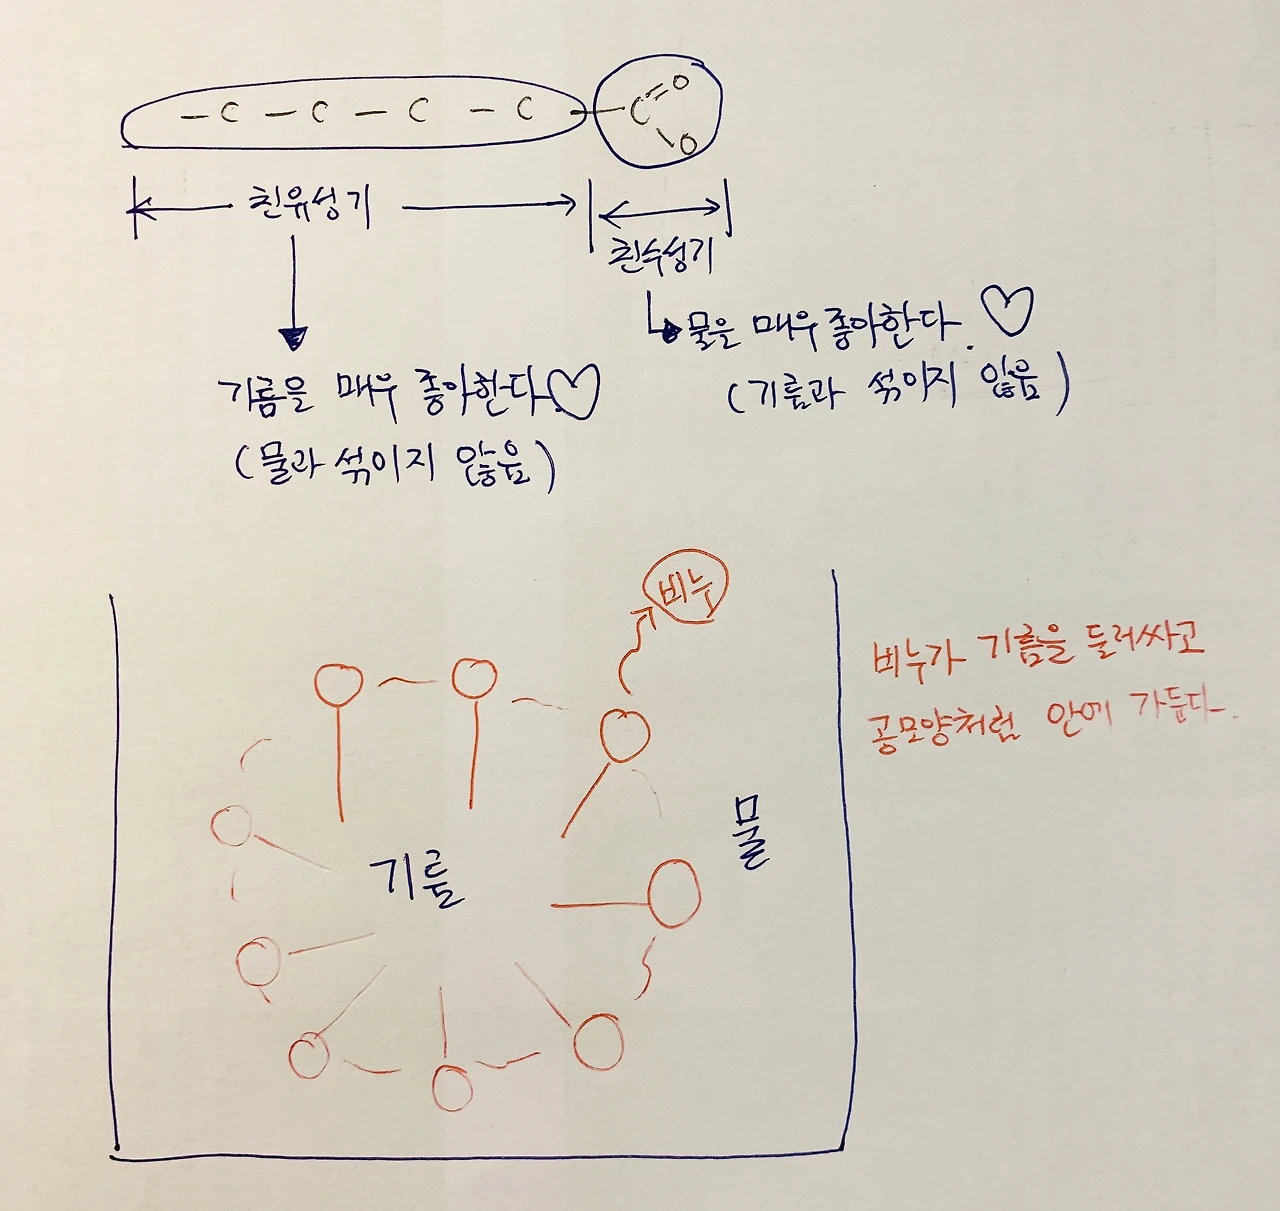 -C-C-C-C-C=O
\O
친유성기
친수성기
물을 매우 좋아한다. ♡
(기름과 섞이지 않음)
기름을 매우 좋아한다. ♡
(물과 섞이지 않음)
비누
비누가 기름을 둘러싸고
공모양처럼 안에 가둔다.
물
기름